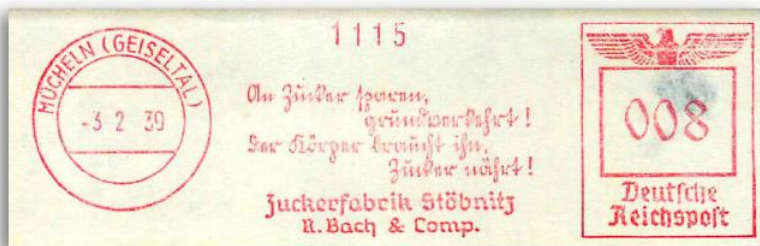 1115
MÜCHELN (GEISELTAL)
-3 2 39
An Zucker sparen,
grundverkehrt!
Der Körper braucht ihn,
Zucker nährt!
Zuckerfabrik Stöbnitz
R. Bach & Comp.
008
Deutsche
Reichspost